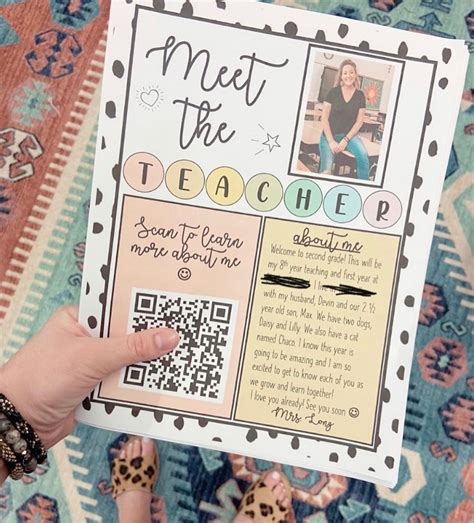 Meet
the
TEACHER
Scan to learn
more about me
about me
Welcome to second grade! This will be
my 8th year teaching and first year at
I live
with my husband, Devin and our 2 ½
year old son, Max. We have two dogs,
Daisy and Lilly. We also have a cat
named Chaco. I know this year is
going to be amazing and I am so
excited to get to know each of you as
we grow and learn together!
I love you already! See you soon
Mrs. Long